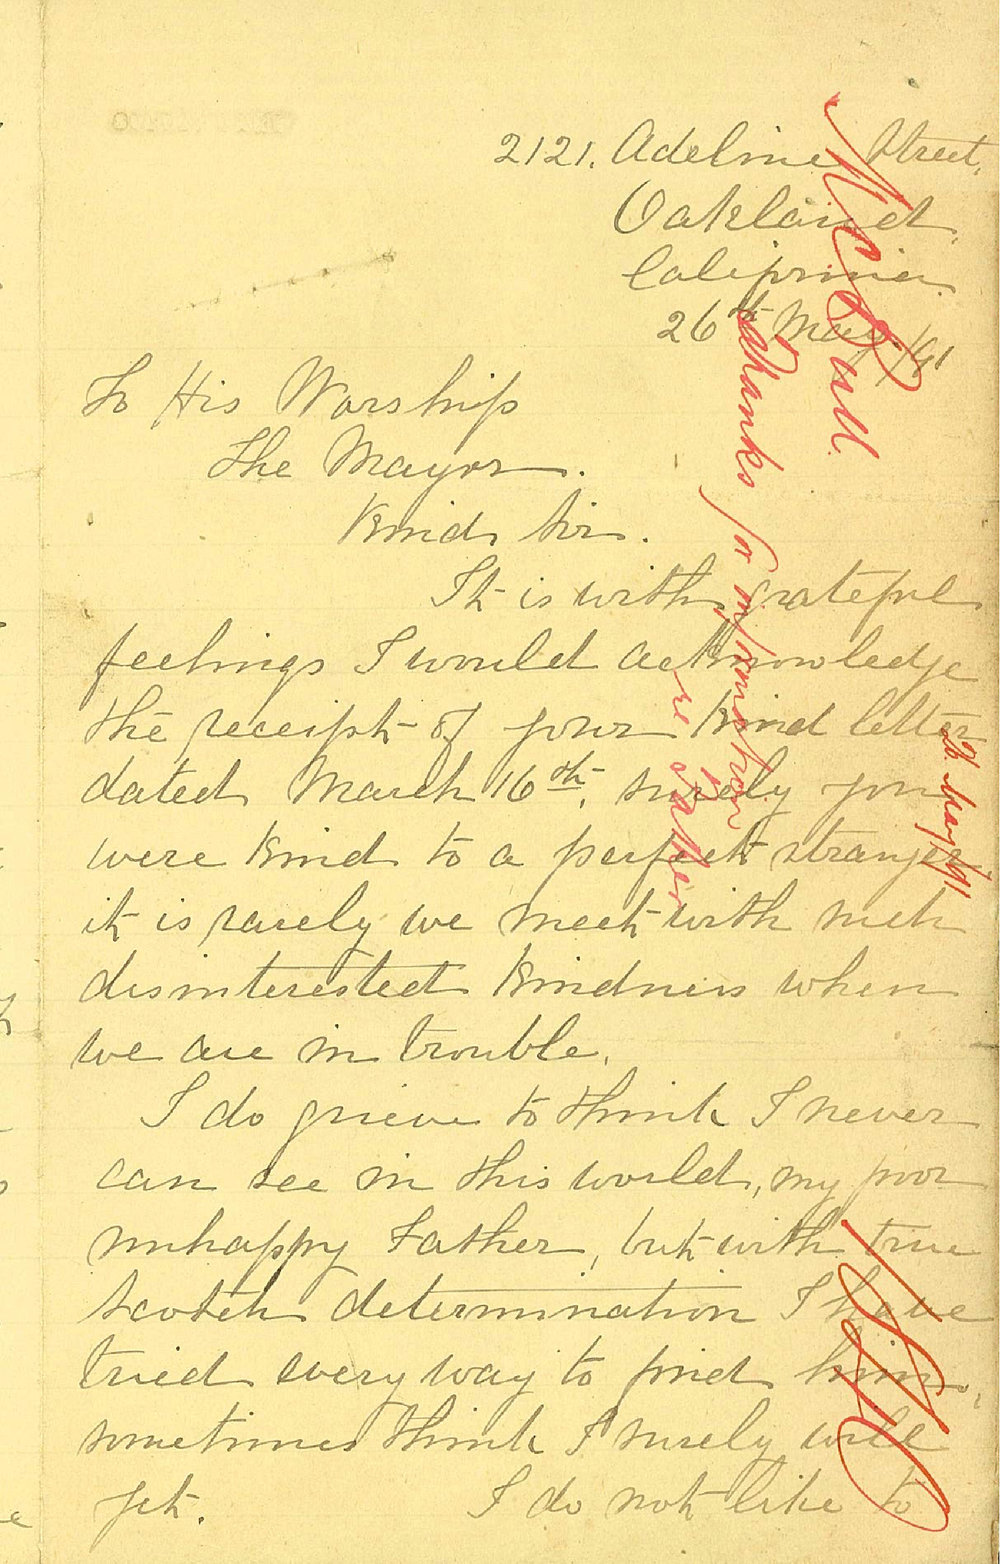 2121. Adeline Street,
Oakland,
California.
26th May/91
To His Worship
The Mayor.
Kind Sir.
It is with grateful
feelings I would acknowledge
the receipt of your kind letter
dated March 16th, surely you
were kind to a perfect stranger
it is rarely we meet with such
disinterested kindness when
we are in trouble.
I do grieve to think I never
can see in this world, my poor
unhappy Father, but with true
Scotch determination I have
tried every way to find him,
sometimes think I surely will
yet. I do not like to
Thanks for information
re Father
26. May/91